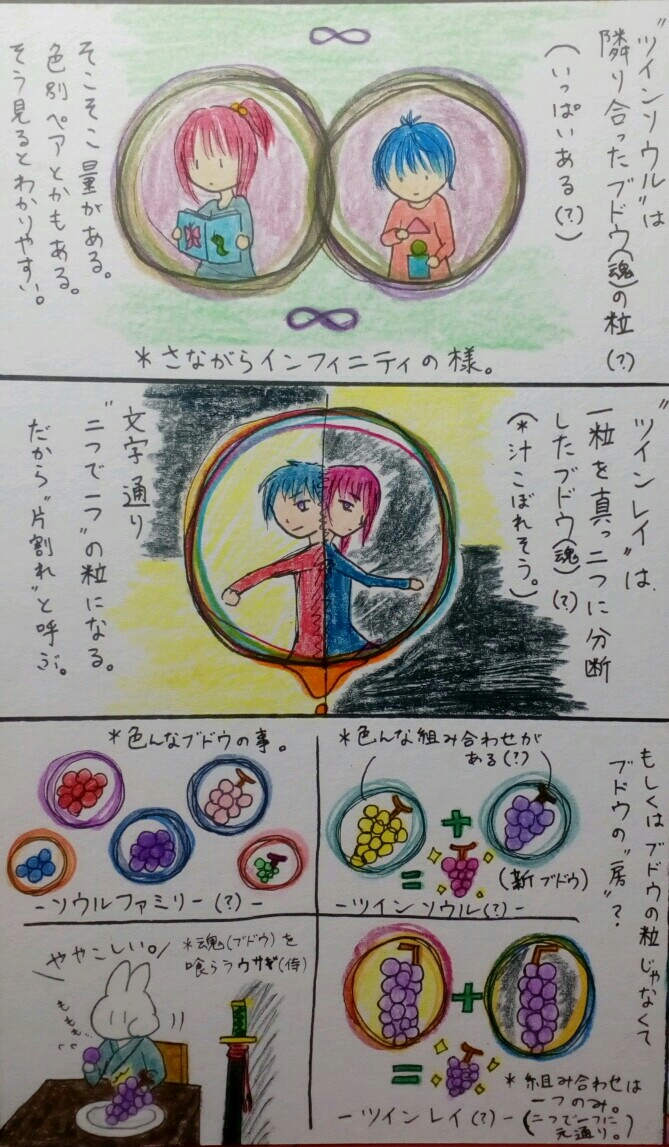 ∞
"ツインソウル"は
隣り合ったブドウ(魂)の粒(?)
(いっぱいある(?))
そこそこ量がある。
色別ペアとかもある。
そう見るとわかりやすい。
∞
*さながらインフィニティの様。
"ツインレイ"は、
一粒を真っ二つに分断
したブドウ(魂)(?)
(*汁こぼれそう。)
文字通り
"二つで一つ"の粒になる。
だから"片割れ"と呼ぶ。
もしくはブドウの粒じゃなくて
ブドウの"房"?
*色んな組み合わせが
ある(?)
+
=
(新ブドウ)
-ツインソウル(?)-
*色んなブドウの事。
-ソウルファミリー(?)-
+
=
*組み合わせは
一つのみ。
(二つで一つに
元通り。)
-ツインレイ(?)-
*魂(ブドウ)を
喰らうウサギ(侍)
ややこしい。
もぐもぐ